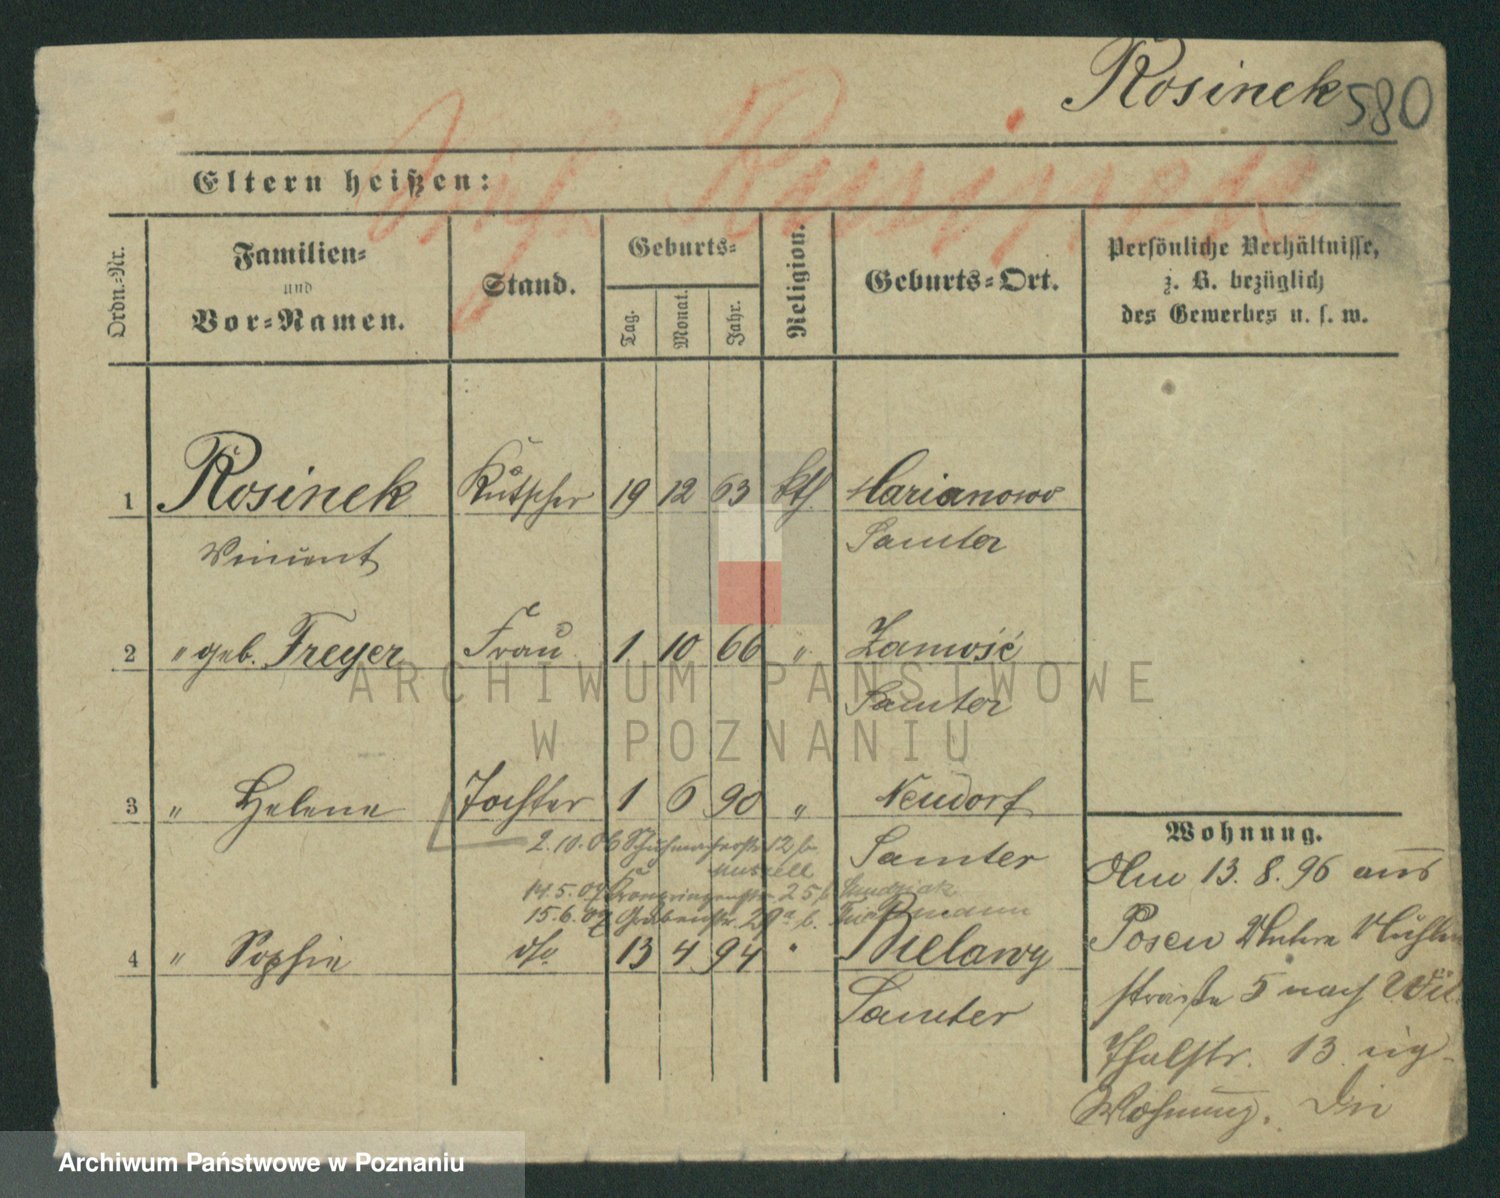 Rosinek 580
Eltern heißen:
Ordn.-Nr.
Familien-
und
Vor-Namen.
Stand.
Geburts-
Tag.
Monat.
Jahr.
Religion.
Geburts-Ort.
Persönliche Verhältnisse,
z. B. bezüglich
des Gewerbes u. s. w.
1 Rosinek Kutscher 19 12 63 kth. Marianowo
Vincent Samter
2 " geb. Freyer Frau 1 10 66 " Zamość
Samter
3 " Helene Tochter 1 6 90 " Neudorf
2.10.06 Schuhmacherstr. 12 b.
Samter
14.5.07 Kronprinzenstr. 25 b.
15.6.07 Grabenstr. 29a b.
4 " Sophie dto 13 4 94 " Bielawy
Samter
Wohnung.
Am 13. 8. 96 aus
Posen Mühlen
straße 5 nach
Thalstr. 13
Wohnung. Die
ARCHIWUM PAŃSTWOWE
W POZNANIU
Archiwum Państwowe w Poznaniu